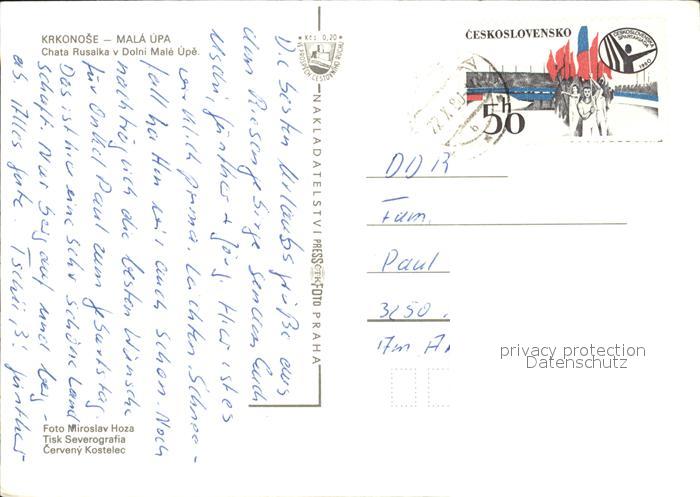 KRKONOŠE — MALÁ ÚPA
Chata Rusalka v Dolní Malé Úpě.
Kčs 0,20
NAKLADATELSTVÍ PRESSFOTO PRAHA
ČESKOSLOVENSKO
ČESKOSLOVENSKÁ SPARTAKIÁDA 1980
50 h
Die besten Urlaubsgrüße aus
dem Riesengebirge senden Euch
Uschi, Günther + Jörg. Hier ist es
wirklich prima. Leichten Schnee-
fall hatten wir auch schon. Noch
nachträglich die besten Wünsche
für Onkel Paul zum Geburtstag.
Das ist hier eine sehr schöne Land-
schaft. Nur bergauf und berg-
ab. Alles Gute. Tschüß! Günther
DDR
Fam.
Paul
3250
Am
privacy protection
Datenschutz
Foto Miroslav Hoza
Tisk Severografia
Červený Kostelec